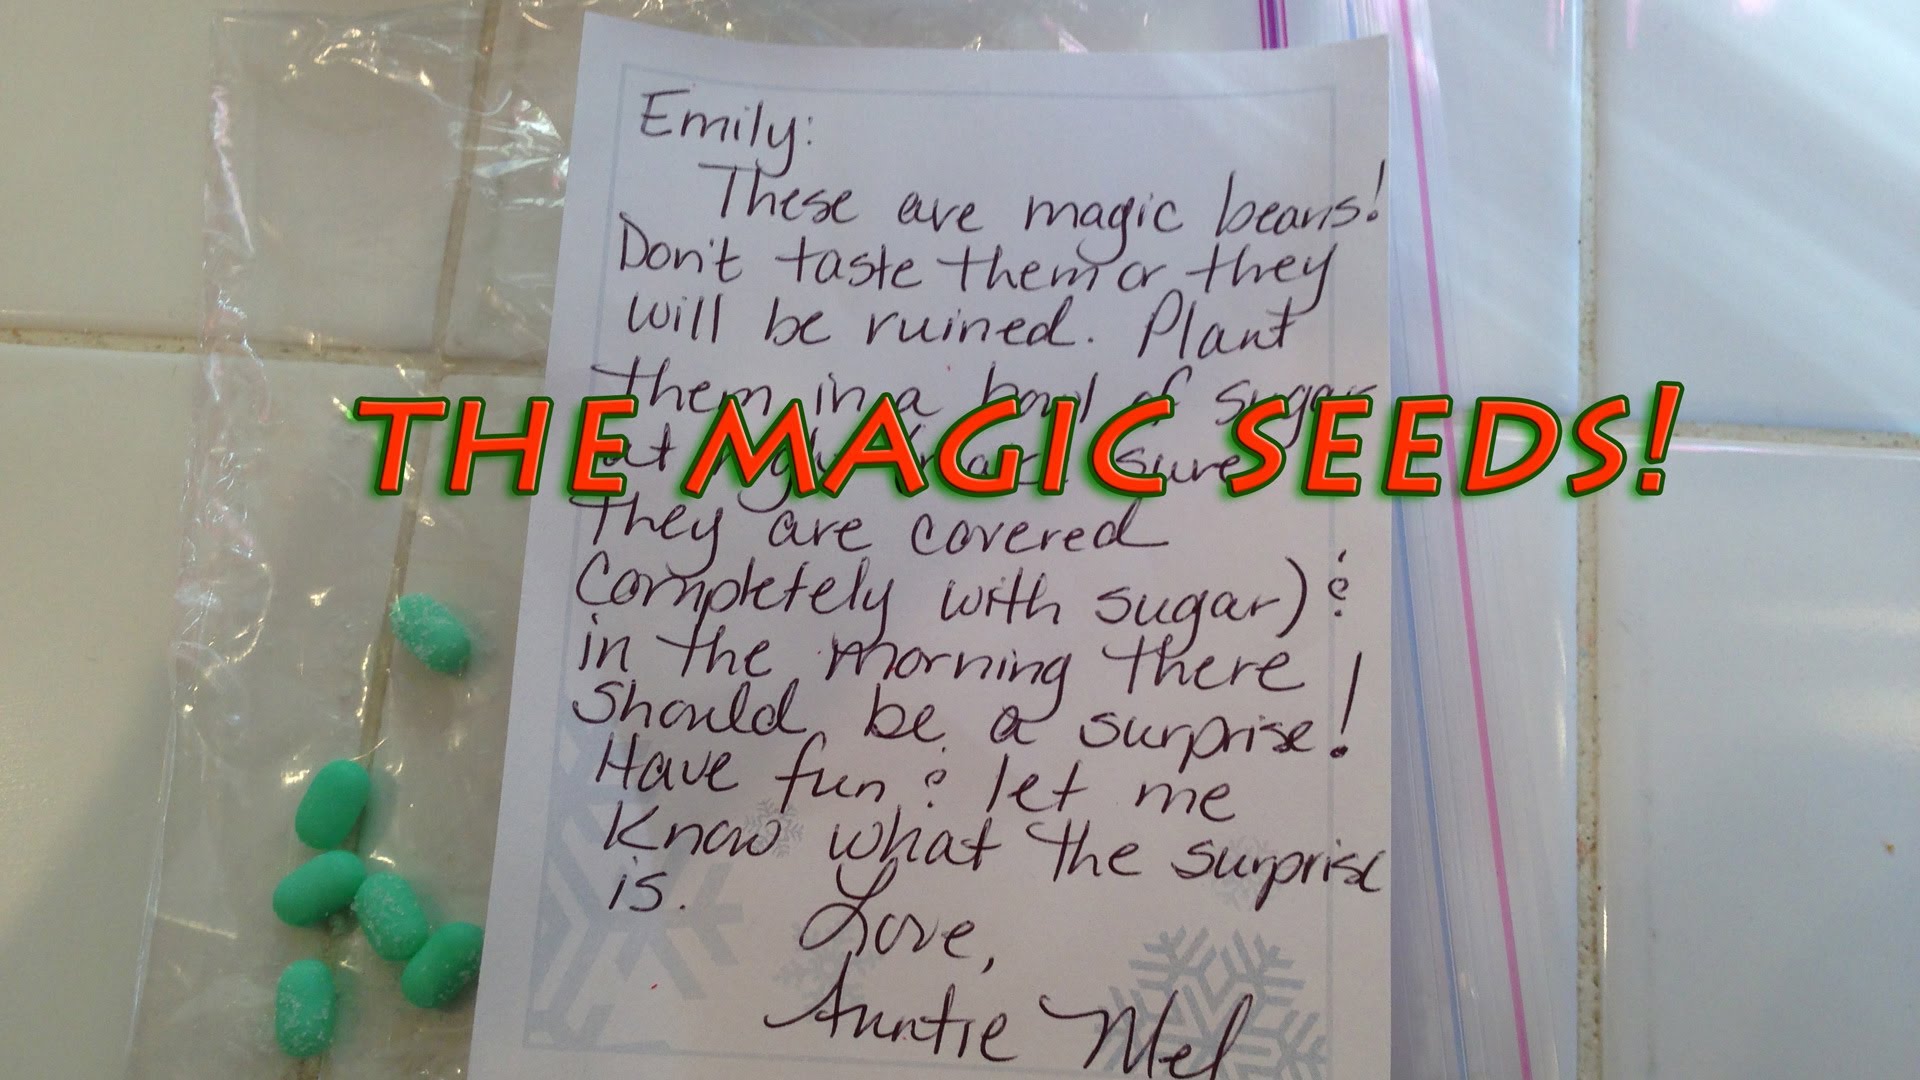 Emily:
These are magic beans!
Don't taste them or they
will be ruined. Plant
them in a bowl of sugar
THE MAGIC SEEDS!
at sure
they are covered
completely with sugar) &
in the morning there
should be a surprise!
Have fun & let me
know what the surprise
is.
Love,
Auntie Mel